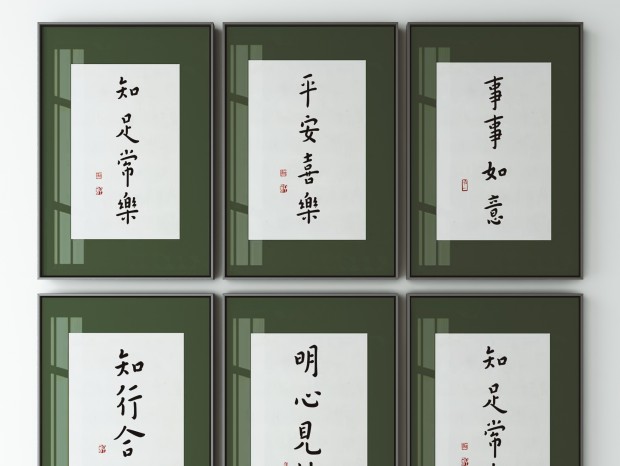 知足常樂
平安喜樂
事事如意
知行合
明心見
知足常